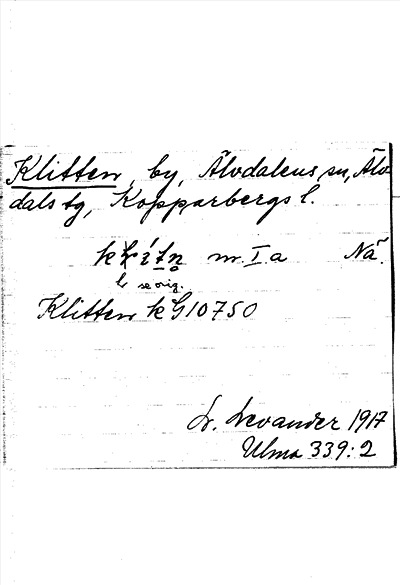 Klitten, by, Älvdalens sn, Älv-
dals tg, Kopparbergs l.
m. I a Nä.
se orig.
Klitten k G10750
L. Levander 1917
Ulma 339:2